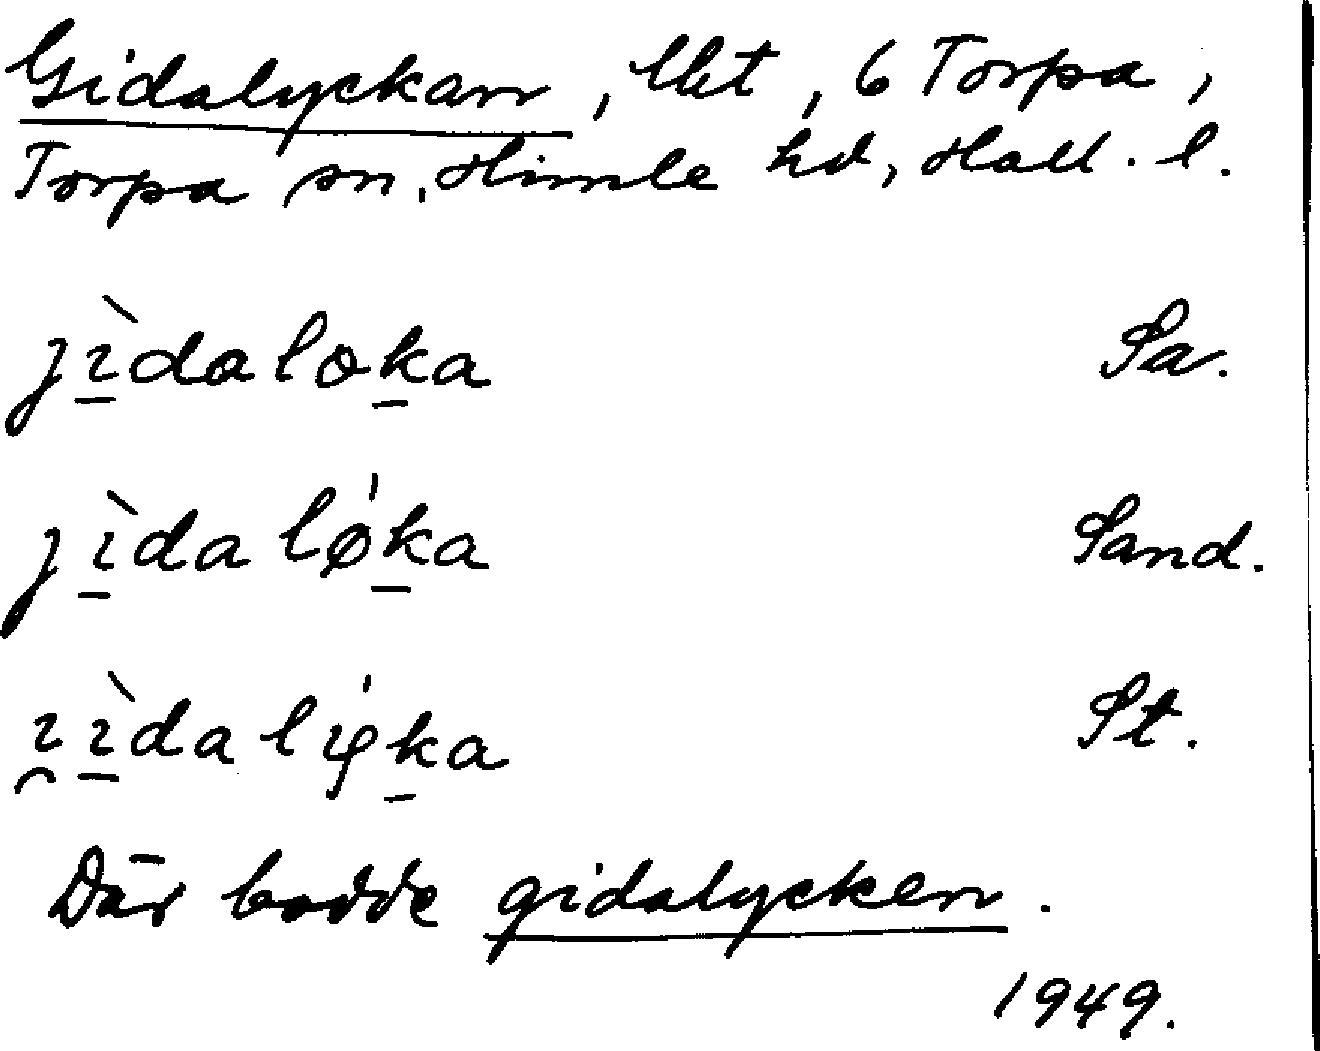 Gidalyckan, lht, 6 Torpa,
Torpa sn, Himle hd, Hall. l.
jìdaloka Sa.
jìdaløka Sand.
Sand.
St.
Där bodde gidalycken.
1949.